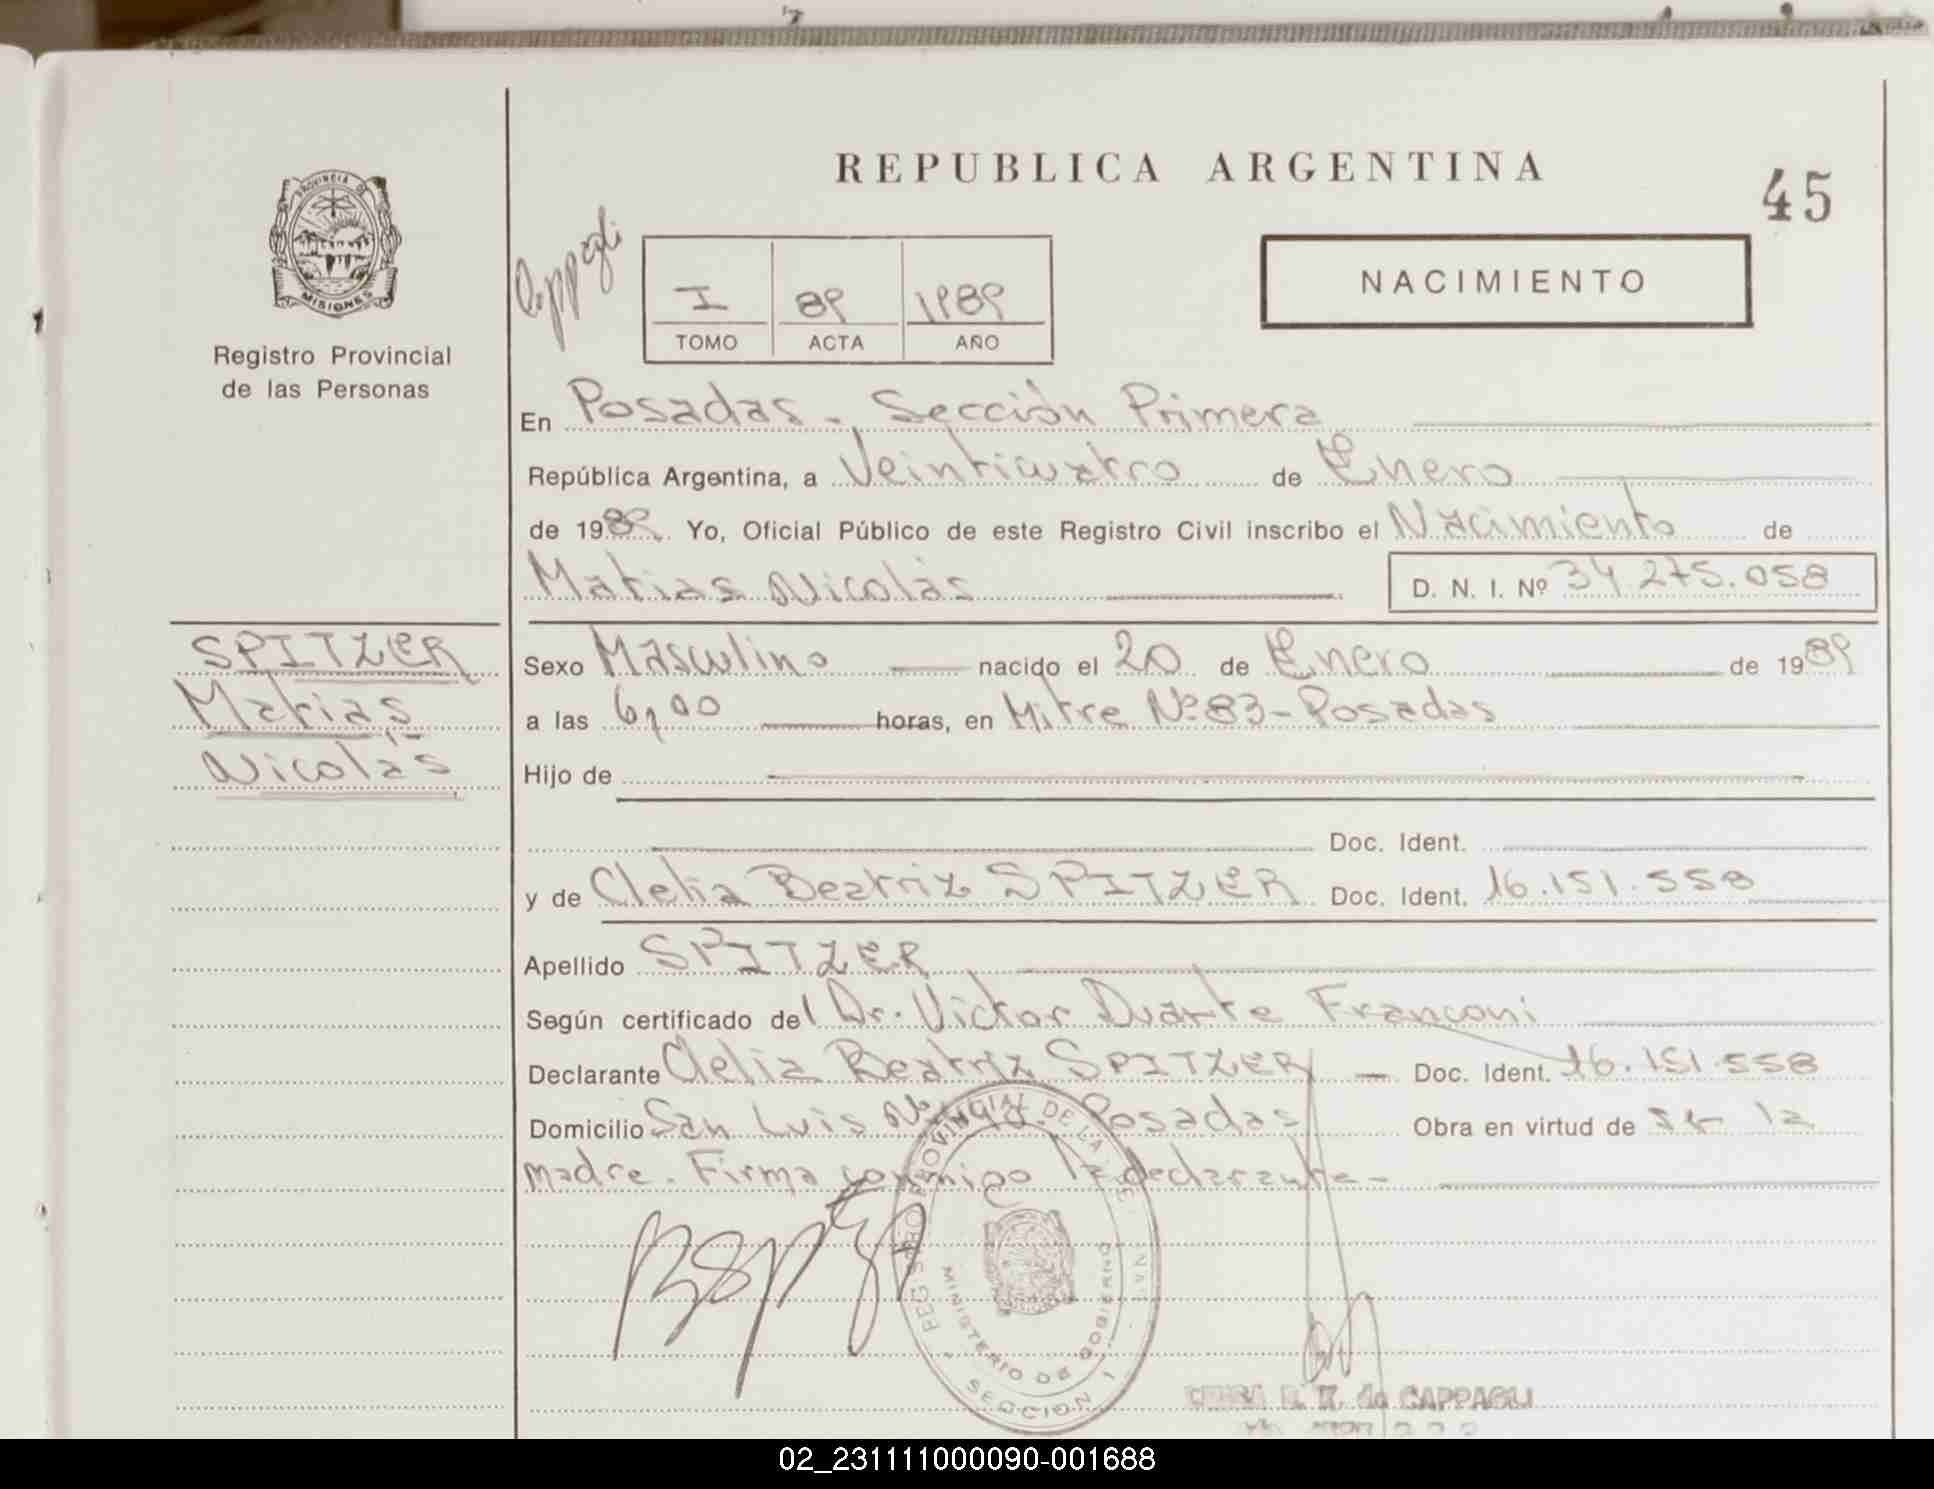 REPUBLICA ARGENTINA
45
PROVINCIA DE
MISIONES
Registro Provincial
de las Personas
Cappagli
I 89 1989
TOMO ACTA AÑO
NACIMIENTO
En Posadas - Sección Primera
República Argentina, a Veinticuatro de Enero
de 1989. Yo, Oficial Público de este Registro Civil inscribo el Nacimiento de
Matias Nicolás D. N. I. Nº 34.275.058
SPITZER
Matias
Nicolás
Sexo Masculino nacido el 20 de Enero de 1989
a las 6,00 horas, en Mitre Nº 83 - Posadas
Hijo de
Doc. Ident.
y de Clelia Beatriz SPITZER Doc. Ident. 16.151.558
Apellido SPITZER
Según certificado del Dr. Victor Duarte Franconi
Declarante Clelia Beatriz SPITZER — Doc. Ident. 16.151.558
Domicilio San Luis Posadas Obra en virtud de ser la
madre. Firma conmigo la declarante-
REGISTRO PROVINCIAL DE LA
MINISTERIO DE GOBIERNO
SECCION 1
de CAPPAGLI
02_231111000090-001688